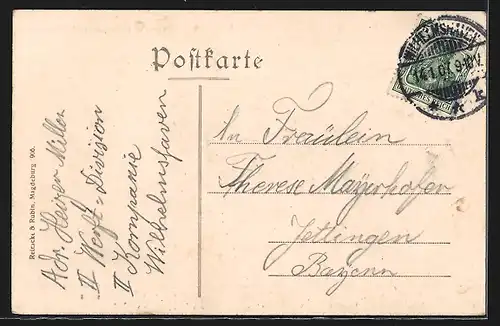 Postkarte
WILHELMSHAVEN
14.1.07.9-10V.
* * k
DEUTSCHES REICH
An Fräulein
Therese Mayerhofer
Jettingen
Bayern
Adr. Heiner Miller
II Werft-Division
II Kompanie
Wilhelmshaven
Reinicke & Rubin, Magdeburg 906.